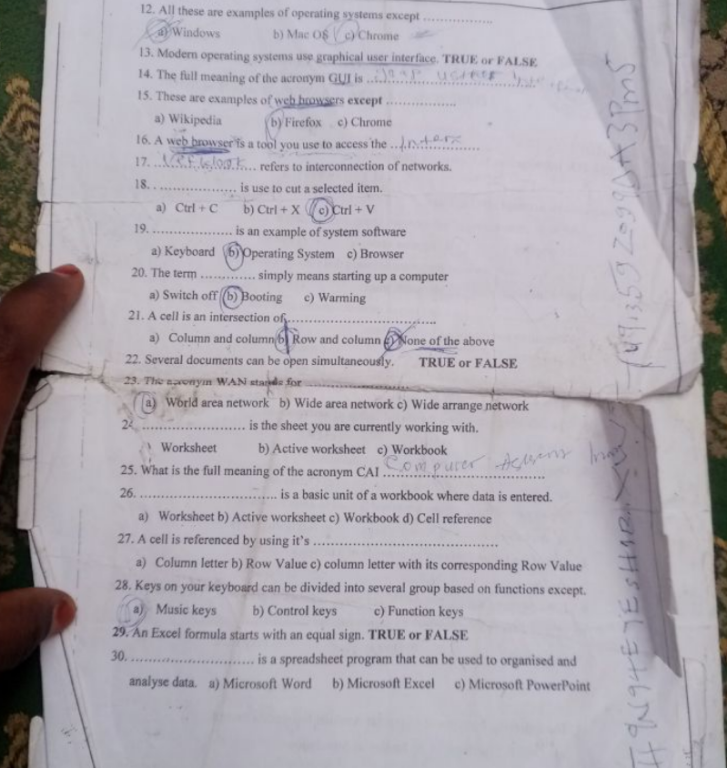 12. All these are examples of operating systems except ..................
a) Windows b) Mac OS c) Chrome
13. Modern operating systems use graphical user interface. TRUE or FALSE
14. The full meaning of the acronym GUI is ..................
15. These are examples of web browsers except ..................
a) Wikipedia b) Firefox c) Chrome
16. A web browser is a tool you use to access the ..................
17. .................. refers to interconnection of networks.
18. .................. is use to cut a selected item.
a) Ctrl + C b) Ctrl + X c) Ctrl + V
19. .................. is an example of system software
a) Keyboard b) Operating System c) Browser
20. The term ............ simply means starting up a computer
a) Switch off b) Booting c) Warming
21. A cell is an intersection of..................
a) Column and column b) Row and column c) None of the above
22. Several documents can be open simultaneously. TRUE or FALSE
23. The acronym WAN stands for ..................
a) World area network b) Wide area network c) Wide arrange network
24. .................. is the sheet you are currently working with.
Worksheet b) Active worksheet c) Workbook
25. What is the full meaning of the acronym CAI .................. Computer
26. .................. is a basic unit of a workbook where data is entered.
a) Worksheet b) Active worksheet c) Workbook d) Cell reference
27. A cell is referenced by using it's ..................
a) Column letter b) Row Value c) column letter with its corresponding Row Value
28. Keys on your keyboard can be divided into several group based on functions except.
a) Music keys b) Control keys c) Function keys
29. An Excel formula starts with an equal sign. TRUE or FALSE
30. .................. is a spreadsheet program that can be used to organised and
analyse data. a) Microsoft Word b) Microsoft Excel c) Microsoft PowerPoint